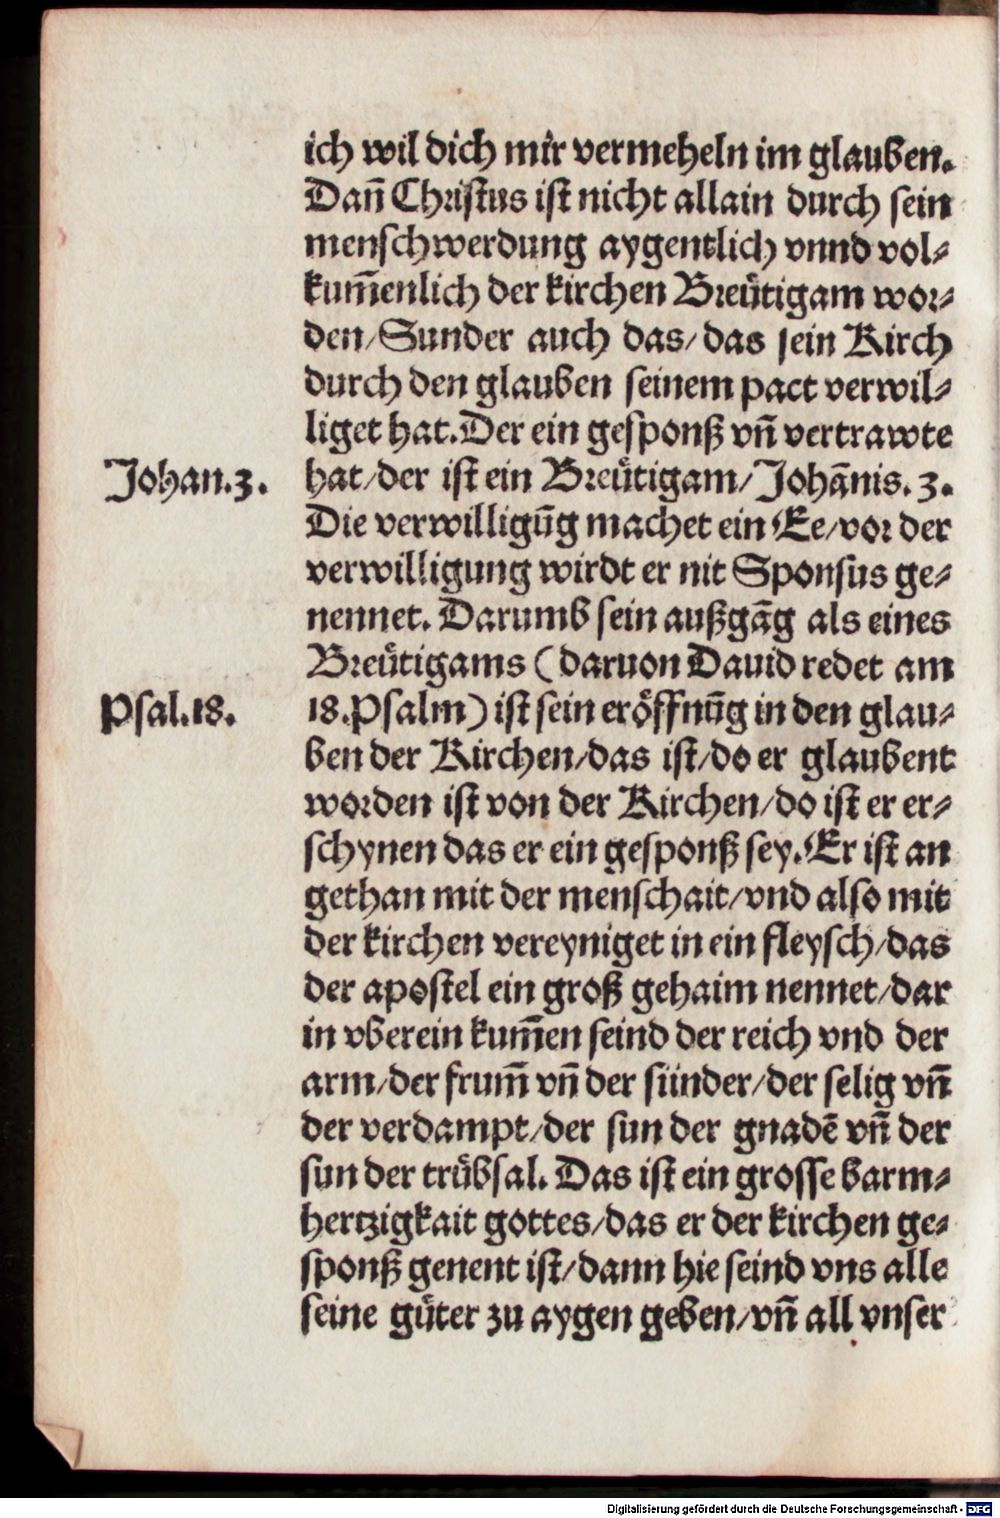 ich wil dich mir vermeheln im glauben.
Dañ Christus ist nicht allain durch sein
menschwerdung aygentlich vnnd vol⸗
kum̃enlich der kirchen Breütigam wor⸗
den/Sunder auch das/das sein Kirch
durch den glauben seinem pact verwil⸗
liget hat. Der ein gesponß vñ vertrawte
Johan.3. hat/der ist ein Breütigam/Johãnis.3.
Die verwilligũg machet ein Ee/vor der
verwilligung wirdt er nit Sponsus ge⸗
nennet. Darumb sein außgãg als eines
Breütigams (daruon Dauid redet am
Psal.18. 18.Psalm) ist sein eröffnũg in den glau⸗
ben der Kirchen/das ist/do er glaubent
worden ist von der Kirchen/do ist er er⸗
schynen das er ein gesponß sey. Er ist an
gethan mit der menschait/vnd also mit
der kirchen vereyniget in ein fleysch/das
der apostel ein groß gehaim nennet/dar
in vberein kum̃en seind der reich vnd der
arm/der frum̃ vñ der sünder/der selig vñ
der verdampt/der sun der gnadẽ vñ der
sun der trübsal. Das ist ein grosse barm⸗
hertzigkait gottes/das er der kirchen ge⸗
sponß genent ist/dann hie seind vns alle
seine güter zu aygen geben/vñ all vnser
Digitalisierung gefördert durch die Deutsche Forschungsgemeinschaft - DFG